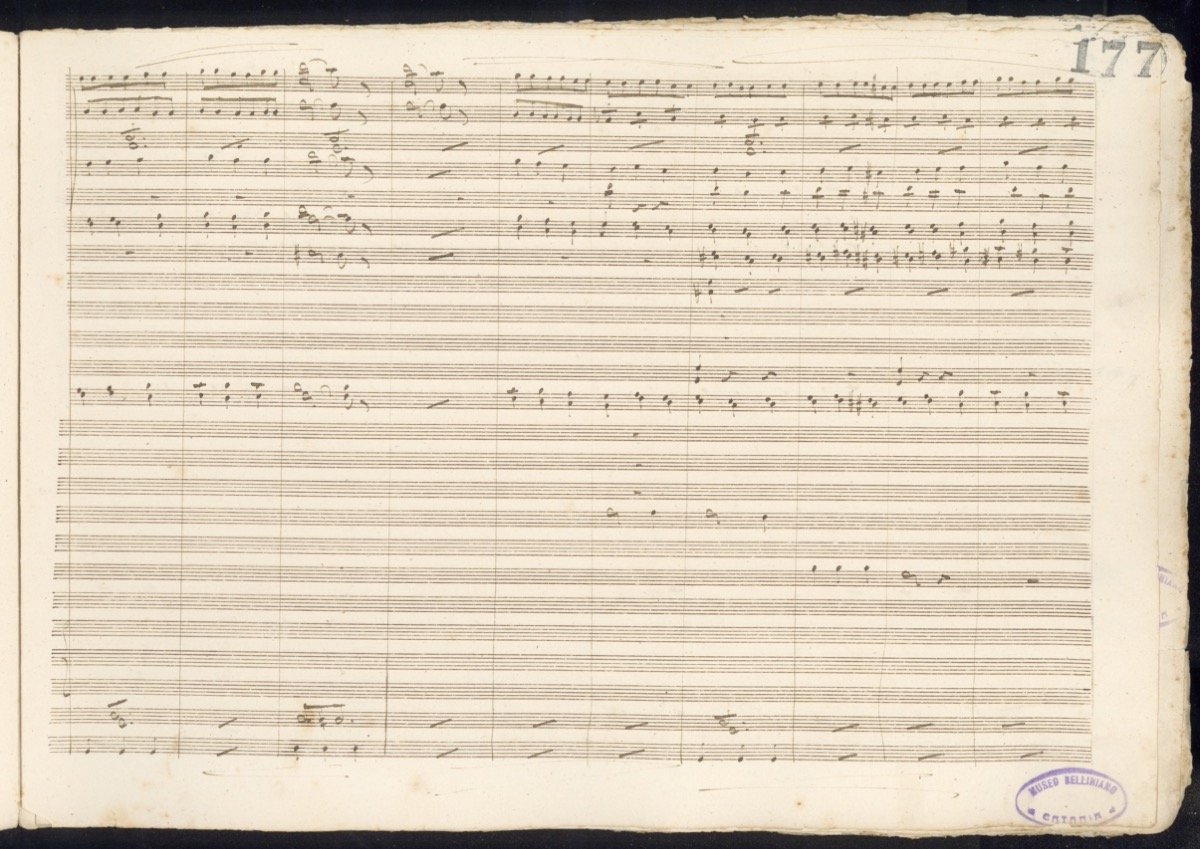 177
MUSEO BELLINIANO
CATANIA